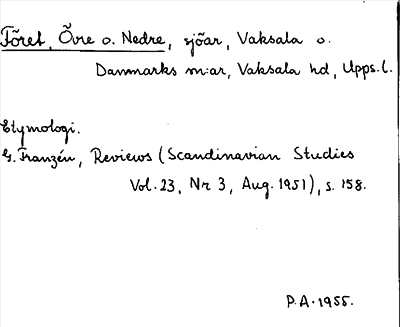 Föret, Övre o. Nedre, sjöar, Vaksala o.
Danmarks m:ar, Vaksala hd, Upps.l.
Etymologi.
G. Franzén, Reviews (Scandinavian Studies
Vol. 23, Nr 3, Aug. 1951), s. 158.
P.A. 1955.